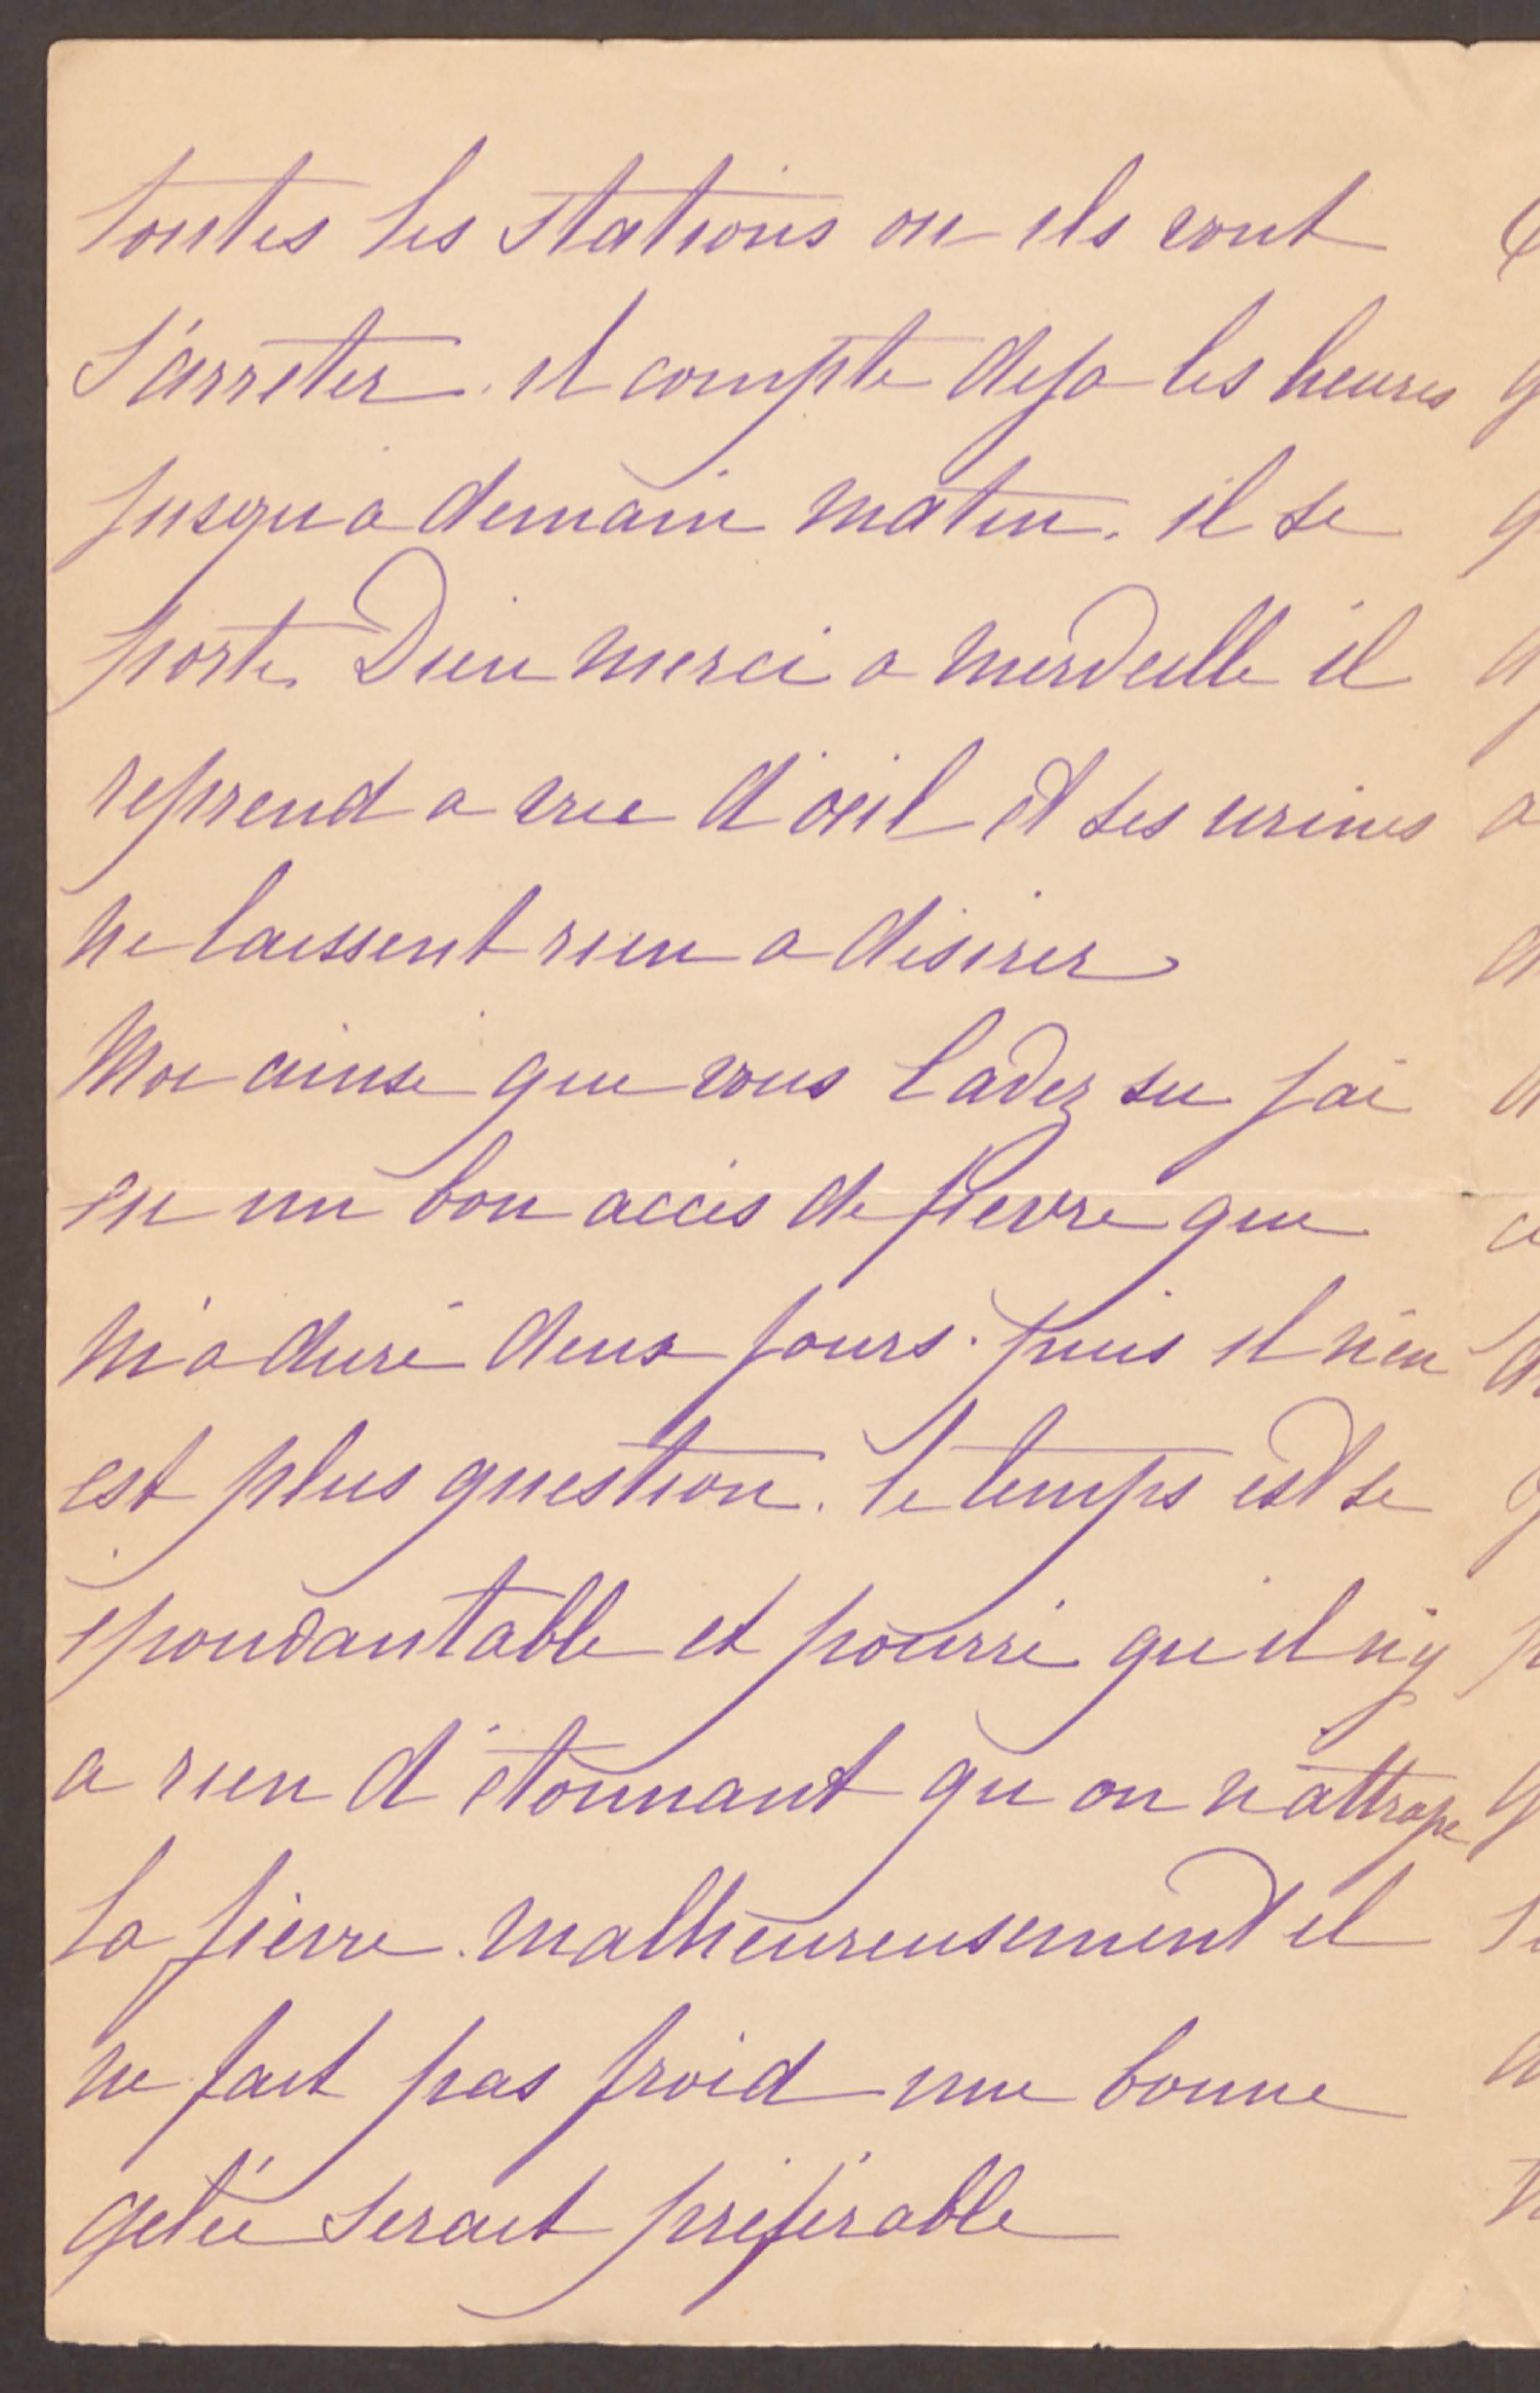 toutes les stations ou ils vont
s'arreter. il compte deja les heures
jusqu a demain matin. il se
porte Dieu merci a merveille il
reprend a vue d'oeil et ses urines
ne laissent rien a desirer
Moi ainsi que vous l'avez su j'ai
eu un bon accès de fievre que
m'a duré deux jours. puis il n'en
est plus question. le temps est se
épouvantable et pourri qu il n'y
a rien d'étonnant qu on n'attrape
la fièvre. malheureusement il
ne fait pas froid une bonne
gelée serait préférable